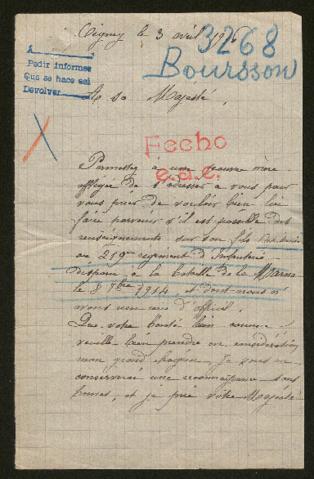 Oigney le 3 avril 1916
3268
Boursson
A
Pedir informes
Que se hace así
Devolver
A sa Majesté,
Fecho
Permettez à une pauvre mère
affligée de s'adresser a vous pour
vous prier de vouloir bien lui
faire parvenir s'il est possible des
renseignements sur son fils
au 289me regiment d'Infanterie
disparu à la Bataille de la Marne
le 8 7bre 1914 et dont nous n'
avons rien d'officiel.
Que votre bonté bien connue
veuille bien prendre en considération
mon grand chagrin. Je vous en
conserverai une reconnaissance sans
bornes, et je prie votre Majesté